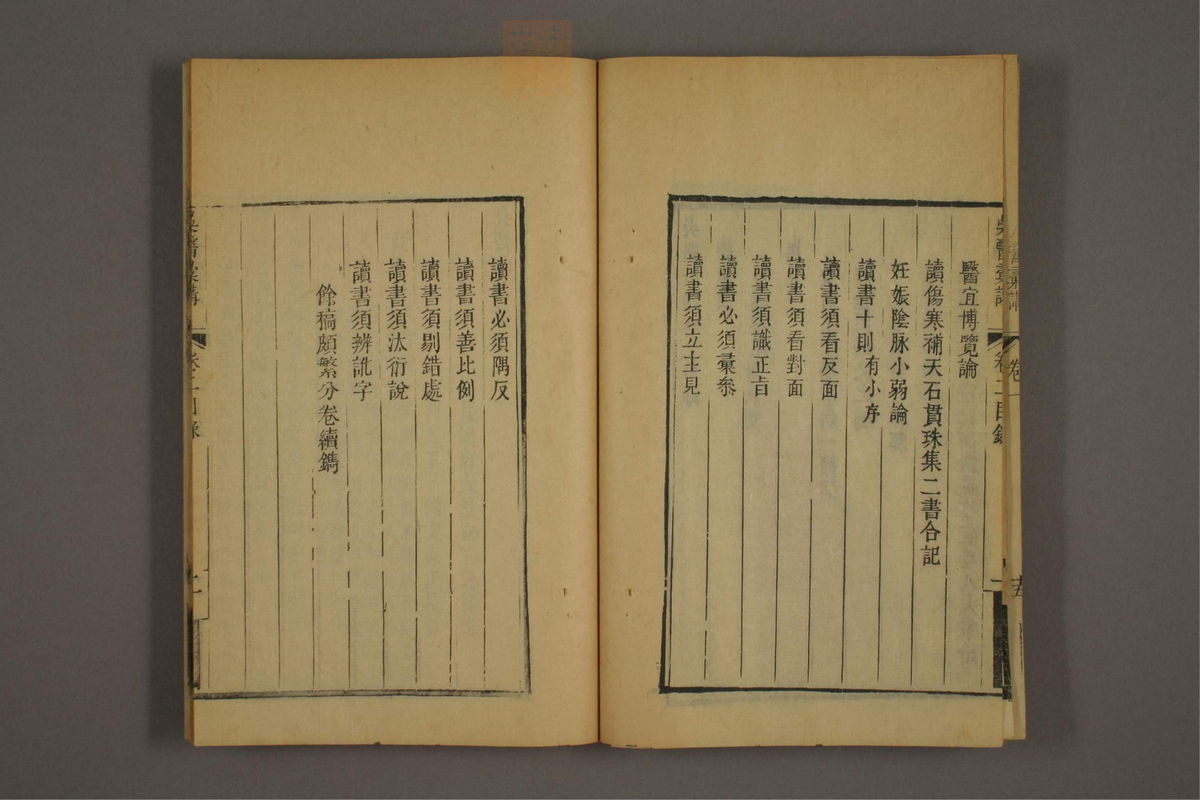 醫宜博覽論
讀傷寒補天石貫珠集二書合記
妊娠隂脉小弱論
讀書十則有小序
讀書須看反面
讀書須看對面
讀書須識正㫖
讀書必須彙叅
讀書須立主見
讀書必須隅反
讀書須善比例
讀書須剔錯處
讀書須汰衍說
讀書須辨訛字
餘稿頗繁分卷續鐫